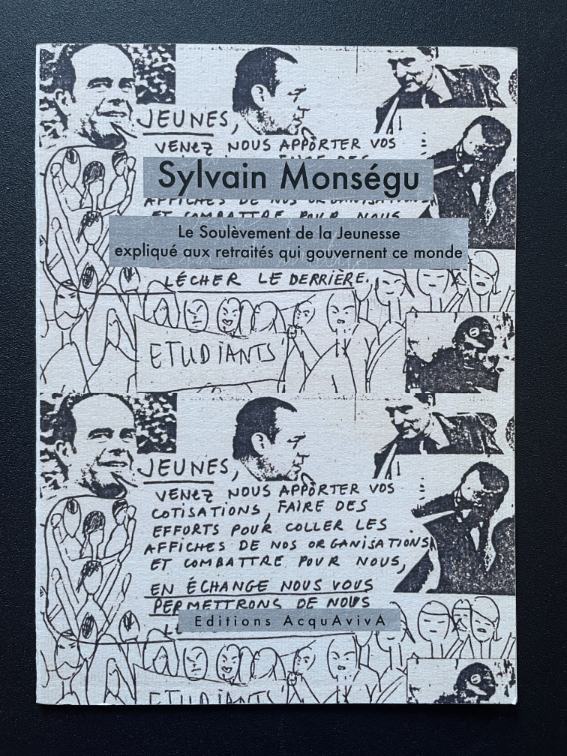 JEUNES,
VENEZ NOUS APPORTER VOS
Sylvain Monségu
AFFICHES DE NOS ORGANISATIONS
ET COMBATTRE POUR NOUS
Le Soulèvement de la Jeunesse
expliqué aux retraités qui gouvernent ce monde
LÉCHER LE DERRIÈRE,
ETUDIANTS
JEUNES,
VENEZ NOUS APPORTER VOS
COTISATIONS, FAIRE DES
EFFORTS POUR COLLER LES
AFFICHES DE NOS ORGANISATIONS
ET COMBATTRE POUR NOUS,
EN ÉCHANGE NOUS VOUS
PERMETTRONS DE NOUS
Editions AcquAvivA
ETUDIANTS